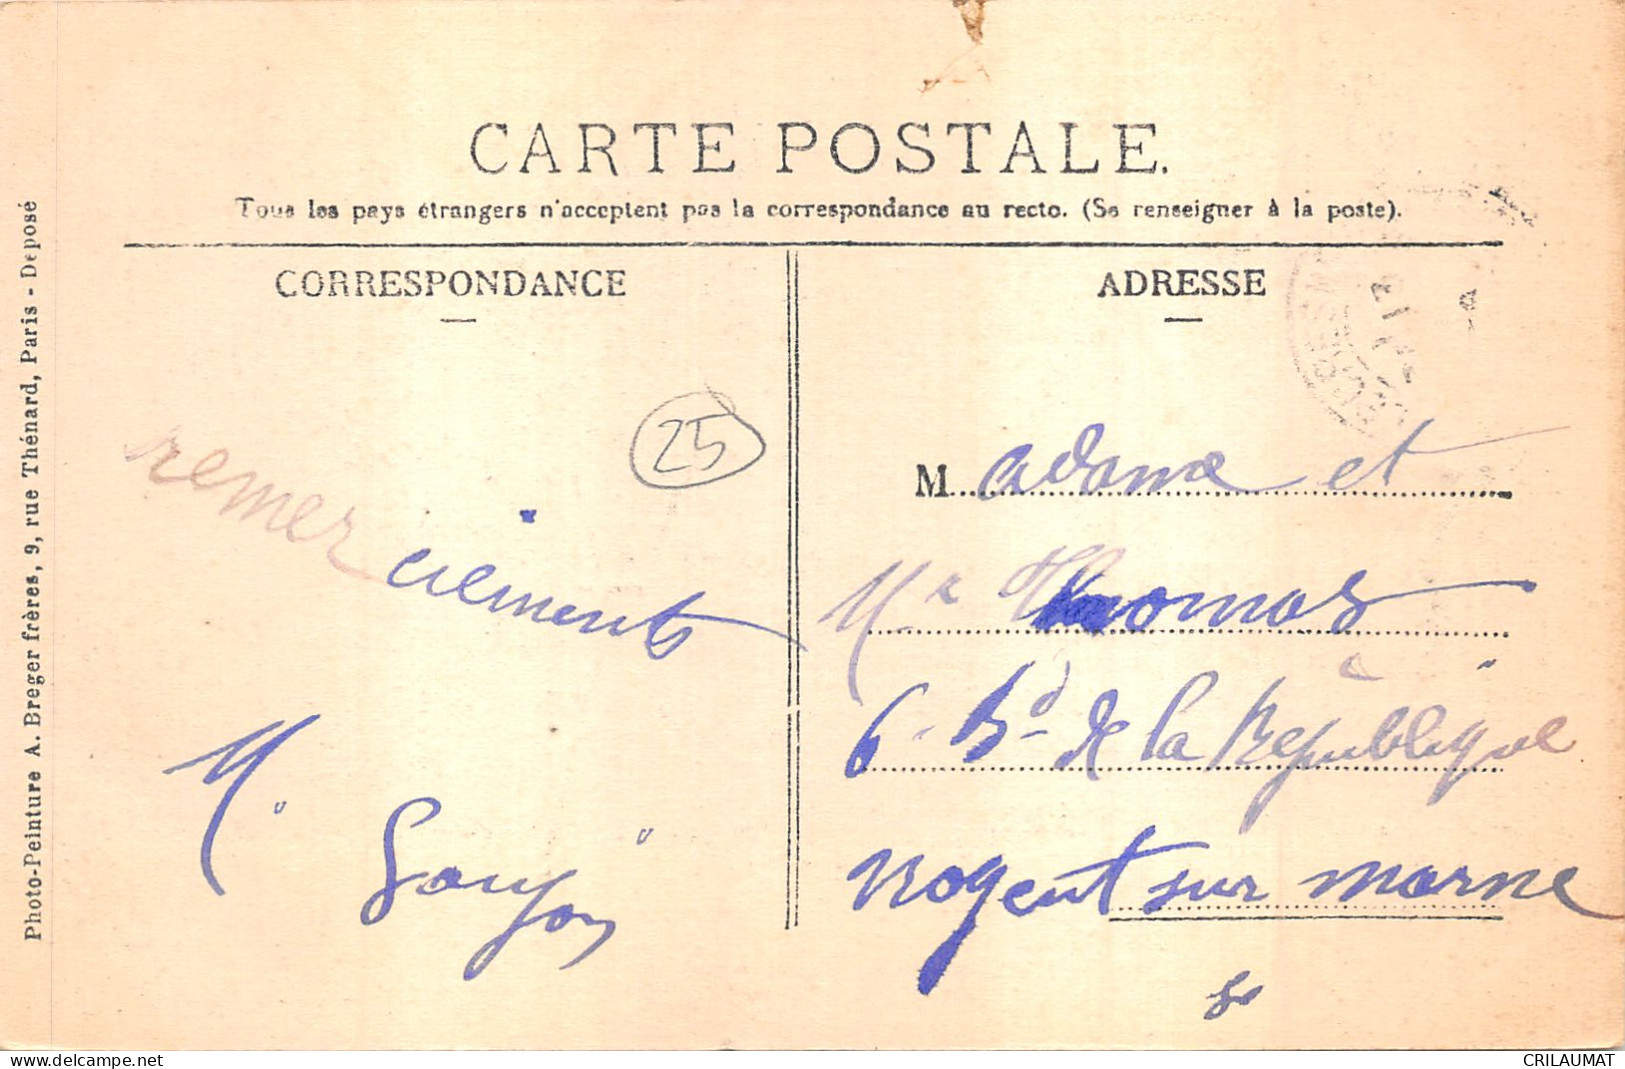 CARTE POSTALE.
Tous les pays étrangers n'acceptent pas la correspondance au recto. (Se renseigner à la poste).
CORRESPONDANCE
25
remerciements
M. Goujon
ADRESSE
Madame et
Mr Thomas
6 Bd de la République
Nogent sur marne
Photo-Peinture A. Breger frères, 9, rue Thénard, Paris - Déposé
www.delcampe.net
CRILAUMAT